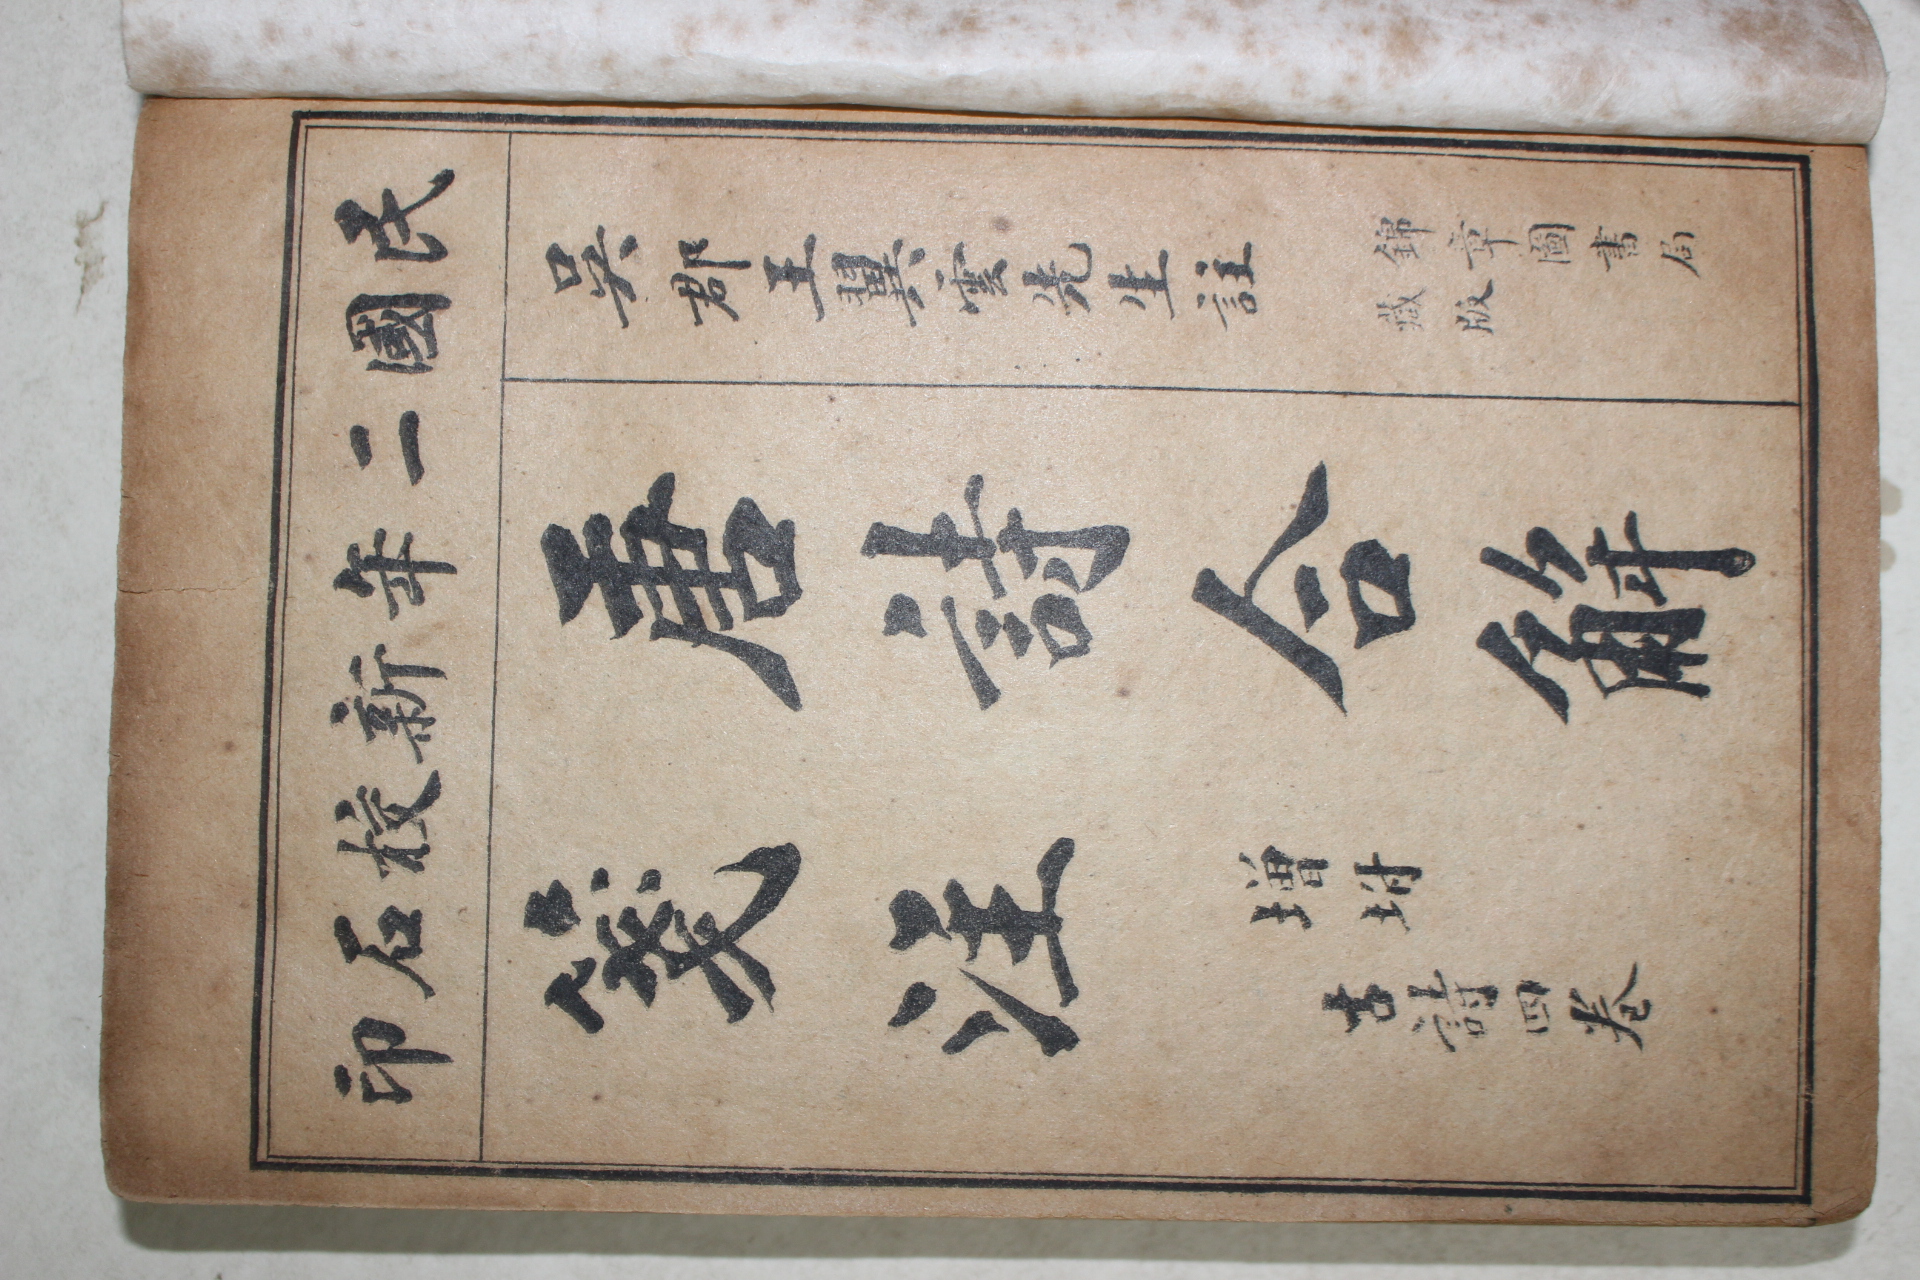 民國二年新校石印
吳郡王翼雲先生註
錦章圖書局
藏版
唐詩合解
箋注
增坿
古詩四卷